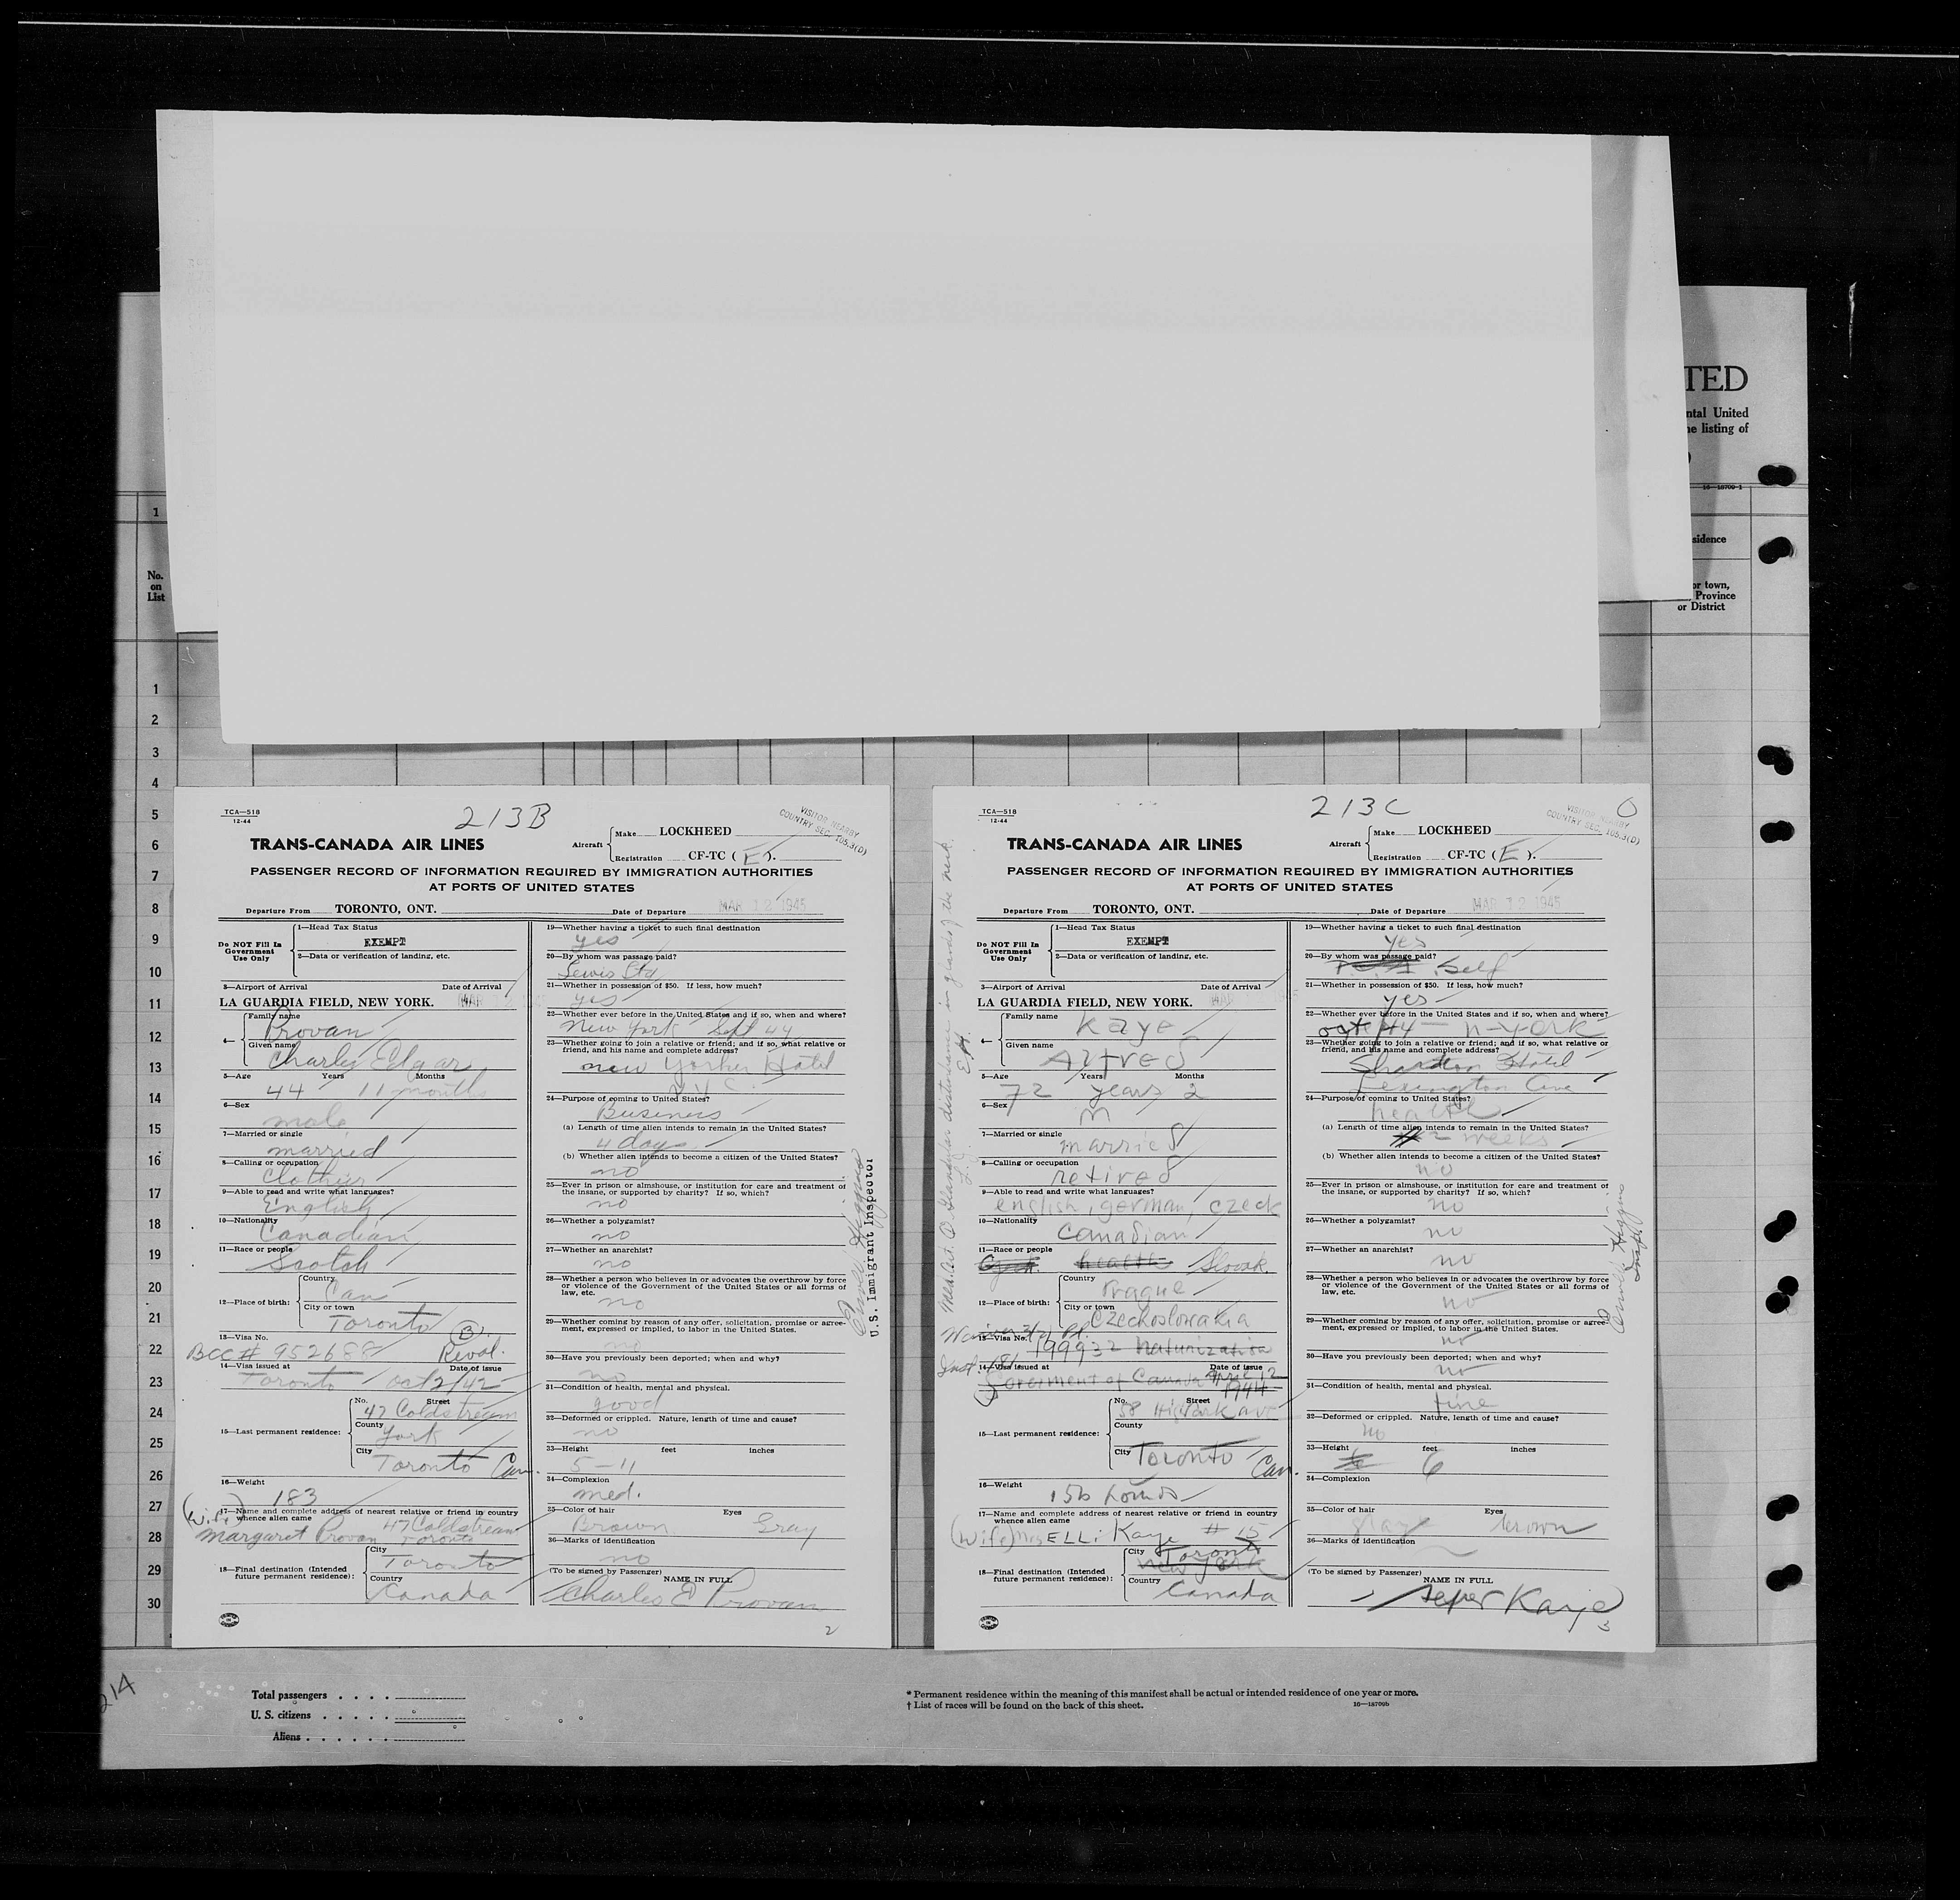 TED
ntal United
he listing of
16—18709-1
1
sidence
No.
on
List
or town,
Province
or District
1
2
3
4
5
6
7
8
9
10
11
12
13
14
15
16
17
18
19
20
21
22
23
24
25
26
27
28
29
30
TCA—518
12-44
213B
VISITOR NEARBY
COUNTRY SEC. 105.3(D)
TRANS-CANADA AIR LINES
Aircraft
Make LOCKHEED
Registration CF-TC (E).
PASSENGER RECORD OF INFORMATION REQUIRED BY IMMIGRATION AUTHORITIES
AT PORTS OF UNITED STATES
Departure From TORONTO, ONT. Date of Departure MAR 12 1945
Do NOT Fill In
Government
Use Only
1—Head Tax Status
EXEMPT
2—Data or verification of landing, etc.
3—Airport of Arrival Date of Arrival
LA GUARDIA FIELD, NEW YORK. MAR
4—
Family name
Provan
Given name
Charles Edgar
5—Age Years Months
44 11 months
6—Sex
male
7—Married or single
married
8—Calling or occupation
Clothier
9—Able to read and write what languages?
English
10—Nationality
Canadian
11—Race or people
Scotch
12—Place of birth:
Country
Can
City or town
Toronto
13—Visa No.
BCC# 952688
(B)
14—Visa issued at Date of issue
Toronto Oct 2/42
15—Last permanent residence:
No. Street
47 Coldstream
County
York
City
Toronto Can.
16—Weight
183
17—Name and complete address of nearest relative or friend in country
whence alien came
(Wife)
47 Coldstream
Margaret Provan Toronto
18—Final destination (Intended
future permanent residence):
City
Toronto
Country
Canada
19—Whether having a ticket to such final destination
yes
20—By whom was passage paid?
Lewis Ltd
21—Whether in possession of $50. If less, how much?
yes
22—Whether ever before in the United States and if so, when and where?
New York Sept 44
23—Whether going to join a relative or friend; and if so, what relative or
friend, and his name and complete address?
New Yorker Hotel
N.Y.C.
24—Purpose of coming to United States?
Business
(a) Length of time alien intends to remain in the United States?
4 days
(b) Whether alien intends to become a citizen of the United States?
no
25—Ever in prison or almshouse, or institution for care and treatment of
the insane, or supported by charity? If so, which?
no
26—Whether a polygamist?
no
27—Whether an anarchist?
no
28—Whether a person who believes in or advocates the overthrow by force
or violence of the Government of the United States or all forms of
law, etc.
no
29—Whether coming by reason of any offer, solicitation, promise or agree-
ment, expressed or implied, to labor in the United States.
no
30—Have you previously been deported; when and why?
no
31—Condition of health, mental and physical.
good
32—Deformed or crippled. Nature, length of time and cause?
no
33—Height feet inches
5 — 11
34—Complexion
med.
35—Color of hair Eyes
Brown Gray
36—Marks of identification
no
(To be signed by Passenger) NAME IN FULL
Charles E Provan
2
U.S. Immigrant Inspector
TCA—518
12-44
213C
VISITOR NEARBY
COUNTRY SEC. 105.3(D)
TRANS-CANADA AIR LINES
Aircraft
Make LOCKHEED
Registration CF-TC (E).
PASSENGER RECORD OF INFORMATION REQUIRED BY IMMIGRATION AUTHORITIES
AT PORTS OF UNITED STATES
Departure From TORONTO, ONT. Date of Departure MAR 12 1945
Do NOT Fill In
Government
Use Only
1—Head Tax Status
EXEMPT
2—Data or verification of landing, etc.
3—Airport of Arrival Date of Arrival
LA GUARDIA FIELD, NEW YORK. MAR
4—
Family name
Kaye
Given name
Alfred
5—Age Years Months
72 years 2
6—Sex
M
7—Married or single
married
8—Calling or occupation
retired
9—Able to read and write what languages?
english, german, czeck
10—Nationality
Canadian
11—Race or people
health Slovak
12—Place of birth:
Country
Prague
City or town
Czechoslovakia
13—Visa No.
199932 Naturization
14—Visa issued at Date of issue
Goverment of Canada April 12
1944
15—Last permanent residence:
No. Street
County
City
Toronto Can.
16—Weight
156 Pounds
17—Name and complete address of nearest relative or friend in country
whence alien came
(Wife) Mrs ELLi Kaye # 15
18—Final destination (Intended
future permanent residence):
City
Toronto
New York
Country
Canada
19—Whether having a ticket to such final destination
yes
20—By whom was passage paid?
Self
21—Whether in possession of $50. If less, how much?
yes
22—Whether ever before in the United States and if so, when and where?
oct 44 — N-York
23—Whether going to join a relative or friend; and if so, what relative or
friend, and his name and complete address?
Hotel
Lexington Ave
24—Purpose of coming to United States?
health
(a) Length of time alien intends to remain in the United States?
2 weeks
(b) Whether alien intends to become a citizen of the United States?
no
25—Ever in prison or almshouse, or institution for care and treatment of
the insane, or supported by charity? If so, which?
no
26—Whether a polygamist?
no
27—Whether an anarchist?
no
28—Whether a person who believes in or advocates the overthrow by force
or violence of the Government of the United States or all forms of
law, etc.
no
29—Whether coming by reason of any offer, solicitation, promise or agree-
ment, expressed or implied, to labor in the United States.
no
30—Have you previously been deported; when and why?
no
31—Condition of health, mental and physical.
fine
32—Deformed or crippled. Nature, length of time and cause?
no
33—Height feet inches
6
34—Complexion
35—Color of hair Eyes
gray brown
36—Marks of identification
(To be signed by Passenger) NAME IN FULL
Kaye
214
Total passengers
U. S. citizens
Aliens
* Permanent residence within the meaning of this manifest shall be actual or intended residence of one year or more.
† List of races will be found on the back of this sheet.
16—18709b